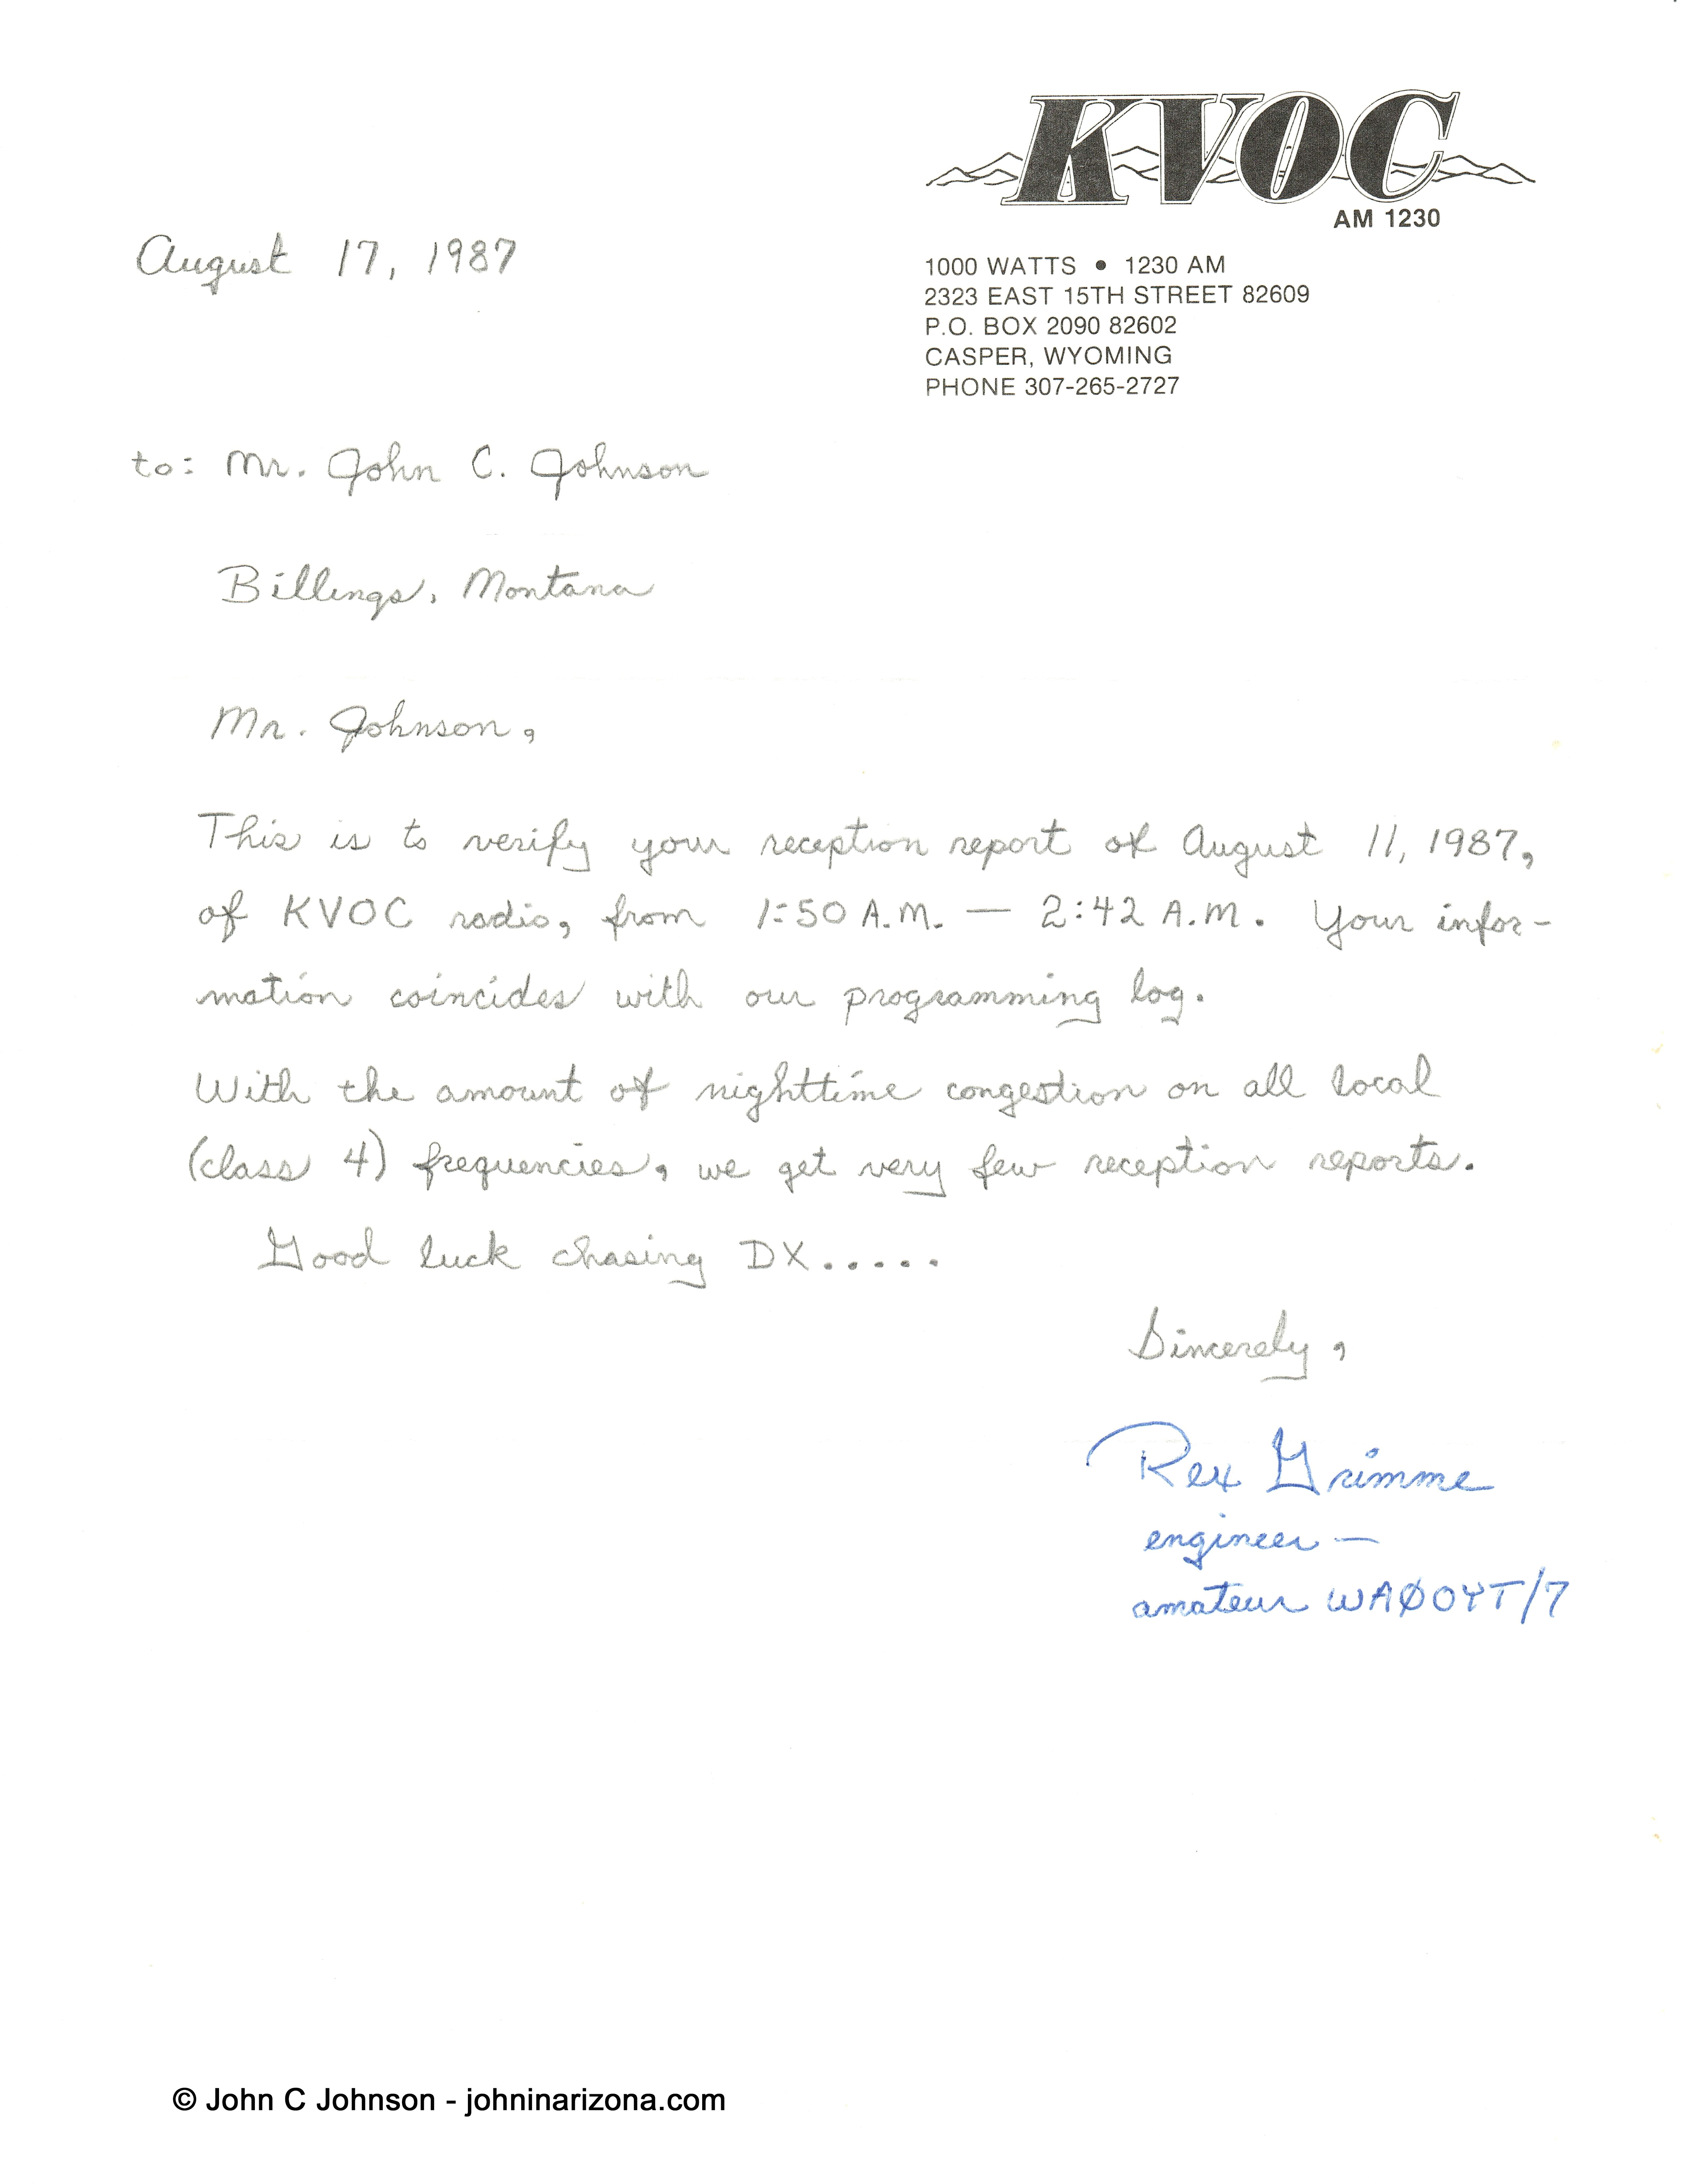 KVOC
AM 1230
1000 WATTS • 1230 AM
2323 EAST 15TH STREET 82609
P.O. BOX 2090 82602
CASPER, WYOMING
PHONE 307-265-2727
August 17, 1987
to: Mr. John C. Johnson
Billings, Montana
Mr. Johnson,
This is to verify your reception report of August 11, 1987,
of KVOC radio, from 1:50 A.M. — 2:42 A.M. Your infor-
mation coincides with our programming log.
With the amount of nighttime congestion on all local
(class 4) frequencies, we get very few reception reports.
Good luck chasing DX.....
Sincerely,
Rex Grimme
engineer —
amateur WAØOYT/7
© John C Johnson - johninarizona.com